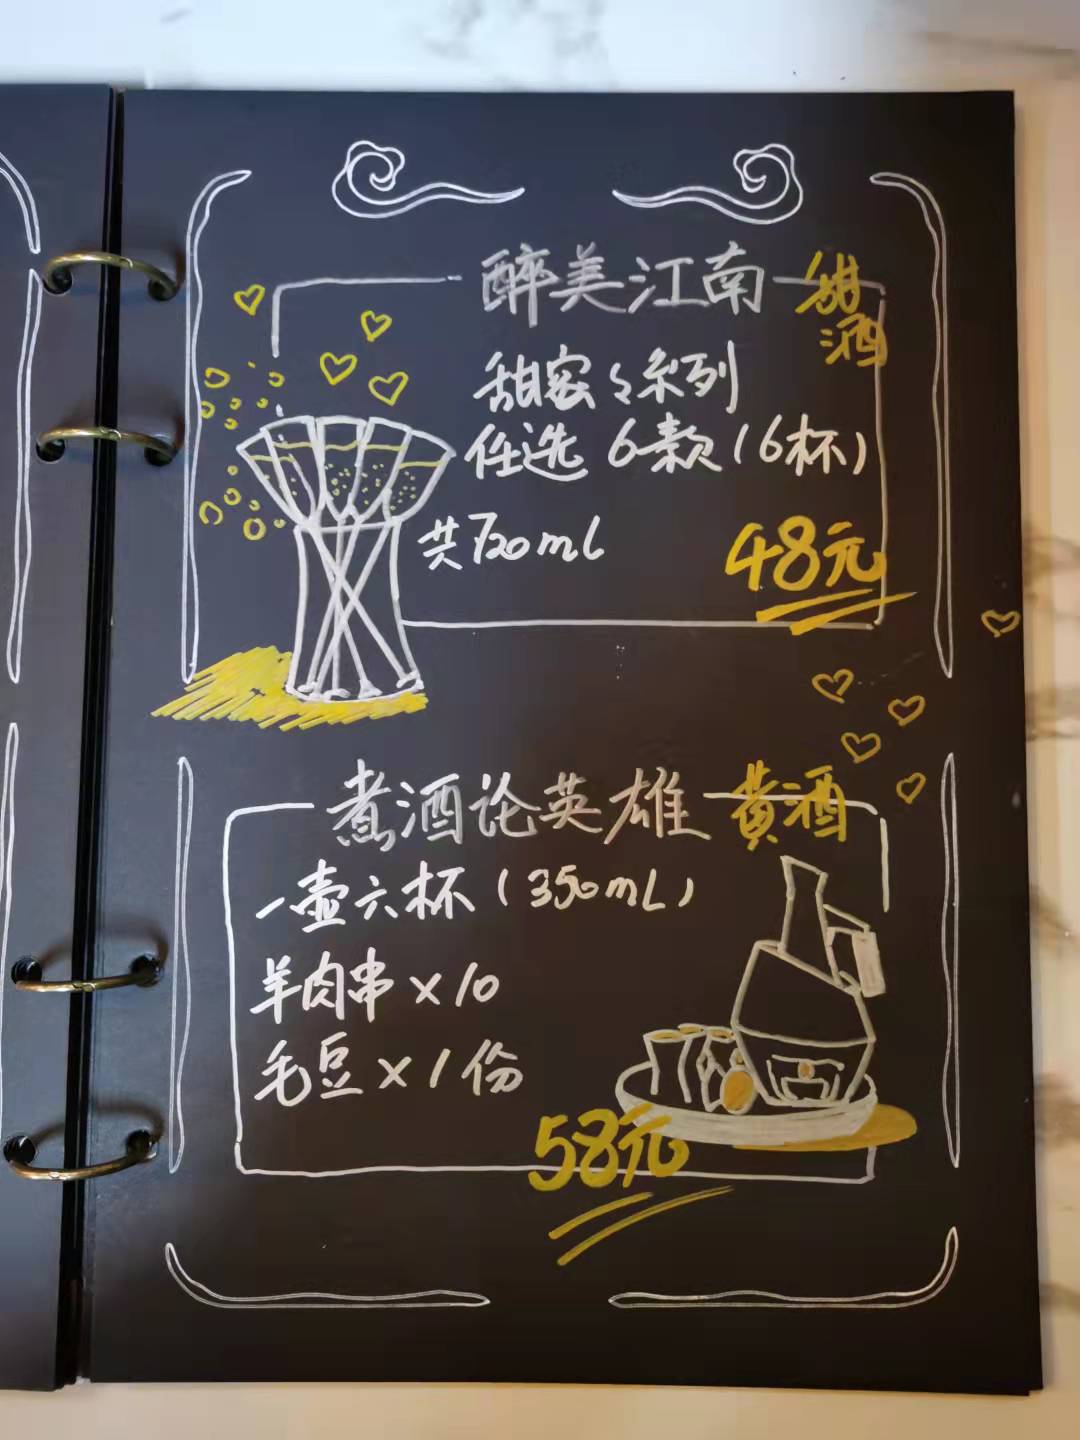 醉美江南
甜酒
甜蜜蜜系列
任选6款(6杯)
共720ml
48元
煮酒论英雄 黄酒
一壶六杯(350mL)
羊肉串×10
毛豆×1份
58元